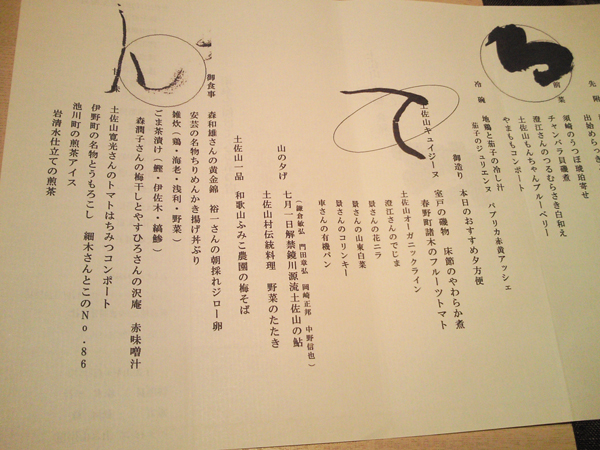 先附
出始めらっき
前菜
須崎のうつぼ琥珀寄せ
チャンバラ貝磯煮
澄江さんのつるむらさき白和え
土佐山もんちゃんブルーベリー
やまももコンポート
冷碗
地鶏と茄子の冷し汁
茄子のジュリエンヌ パプリカ赤黄アッシェ
御造り 本日のおすすめ夕方便
室戸の磯物 床節のやわらか煮
春野町諸木のフルーツトマト
て
土佐山キュイジーヌ
土佐山オーガニックライン
澄江さんのでじま
景さんの花ニラ
景さんの山東白菜
景さんのコリンキー
車さんの有機パン
山の夕げ 七月一日解禁鏡川源流土佐山の鮎
(鎌倉敏弘 門田章弘 岡崎正邦 中野信也)
土佐山村伝統料理 野菜のたたき
土佐山一品 和歌山ふみこ農園の梅そば
御食事 森和雄さんの黄金錦 裕一さんの朝採れジロー卵
安芸の名物ちりめんかき揚げ丼ぶり
雑炊(鶏・海老・浅利・野菜)
ごま茶漬け(鰹・伊佐木・縞鯵)
森潤子さんの梅干しとやすひろさんの沢庵 赤味噌汁
甘味
土佐山寛光さんのトマトはちみつコンポート
伊野町の名物とうもろこし 細木さんとこのNo.86
池川町の煎茶アイス
岩清水仕立ての煎茶